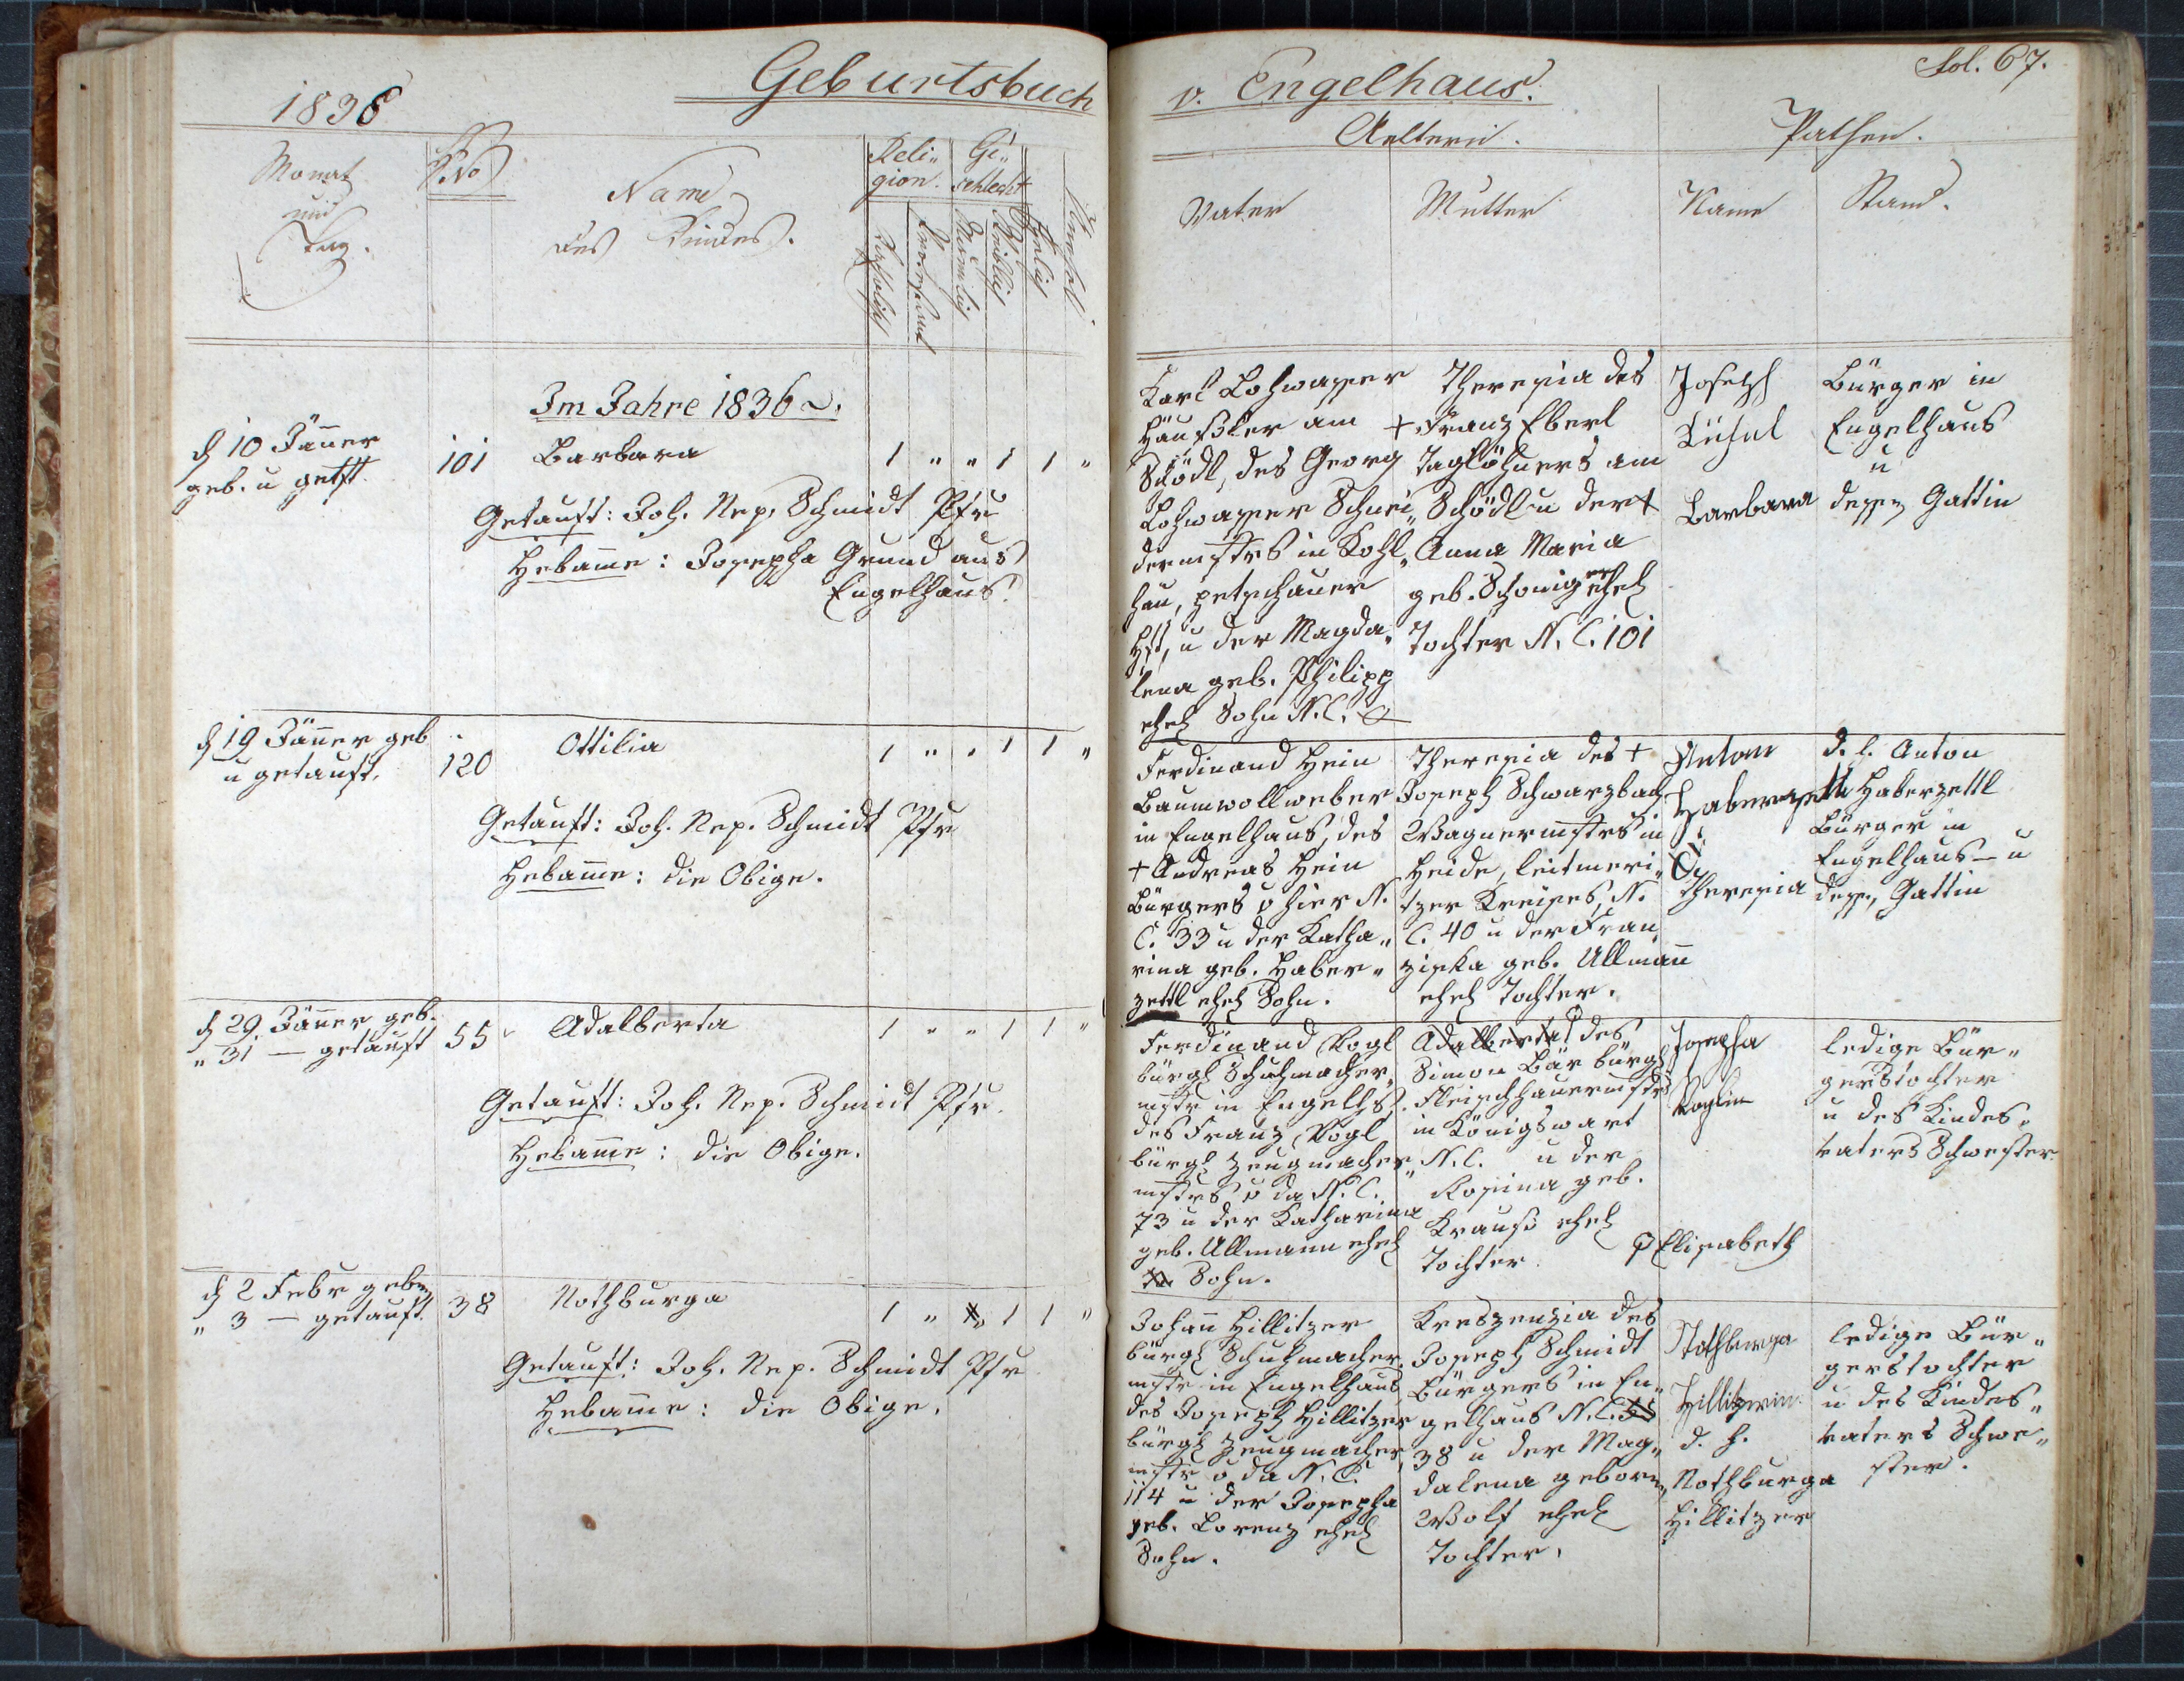 1836
Geburtsbuch
v. Engelhaus.
Fol. 67.
Monat
und
Tag.
N.ro
Name
des Kindes.
Reli„
gion.
Katholisch
Protestant
Ge„
schlecht
Männlich
Weiblich
Ehelich
Unehel.
Aeltern.
Vater
Mutter
Pathen.
Name
Stand.
Im Jahre 1836
d 10 Jäner
geb. u getft.
101
Barbara
1 „ „ 1 1 „
Getauft: Joh. Nep. Schmidt Pfr
Hebame: Josepha Grund aus
Engelhaus.
Karl Lohwasser
Häußler am
Schödl, des Georg
Lohwasser Schnei„
dermstrs in Kohl„
hau, petschauer
Hft, u der Magda„
lena geb. Philipp
ehel Sohn N.C.
Theresia des
+ Franz Eberl
Taglöhners am
Schödl u der +
Anna Maria
geb. Schonig ehel
Tochter N.C. 101
Joseph
Kühnl
Barbara
Bürger in
Engelhaus
u
dessen Gattin
d 19 Jäner geb
u getauft.
120
Ottilia
1 „ „ 1 1 „
Getauft: Joh. Nep. Schmidt Pfr
Hebame: die Obige.
Ferdinand Hein
Baumwollweber
in Engelhaus, des
+ Andreas Hein
Bürgers v hier N.
C. 33 u der Katha„
rina geb. Haber„
zettl ehel Sohn.
Theresia des +
Joseph Schwarzbach
Wagnermstrs in
Heide, leitmeri„
tzer Kreises, N.
C. 40 u der Fran„
ziska geb. Ullmann
ehel Tochter.
Anton
Haberzettl
Theresia
d. h. Anton
Haberzettl
Bürger in
Engelhaus u
dessen Gattin
d 29 Jäner geb.
„ 31 — getauft
55
Adalberta
1 „ „ 1 1 „
Getauft: Joh. Nep. Schmidt Pfr.
Hebame: die Obige.
Ferdinand Vogl
bürgl Schuhmacher„
mstr in Engelhs,
des Franz Vogl
bürgl Zeugmacher„
mstrs v da N.C.
73 u der Katharina
geb. Ullmann ehel
Sohn.
Adalberta des
Simon Bär bürgl
Fleischhauermstrs
in Königswart
N.C. u der
Rosina geb.
Krauß ehel
Tochter.
Elisabeth
Josepha
Voglin
ledige Bür„
gerstochter
u des Kindes„
vaters Schwester
d 2 Febr gebn
„ 3 — getauft.
38
Nothburga
1 „ „ 1 1 „
Getauft: Joh. Nep. Schmidt Pfr
Hebame: die Obige.
Johann Hillitzer
bürgl Schuhmacher„
mstr in Engelhaus
des Joseph Hillitzer
bürgl Zeugmacher„
mstr v da N.C.
114 u der Josepha
geb. Lorenz ehel
Sohn.
Kreszenzia des
Joseph Schmidt
Bürgers in En„
gelhaus N.C.
38 u der Mag„
dalena geborn
Wolf ehel
Tochter.
Nothburga
Hillitzerin
d. h.
Nothburga
Hillitzer
ledige Bür„
gerstochter
u des Kindes„
vaters Schwe„
ster.